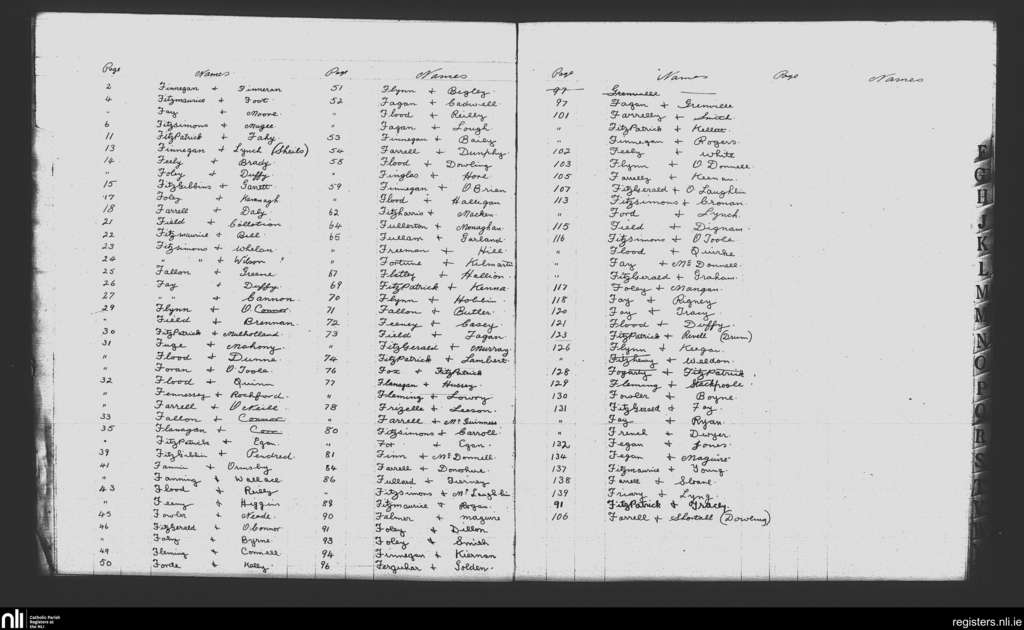 Page Names Page Names
2 Finnegan + Finneran
4 Fitzmaurice + Foot
" Fay + Moore
6 Fitzsimons + Magee
11 FitzPatrick + Fahy
13 Finnegan + Lynch (Sheils)
14 Feely + Brady
" Foley + Duffy
15 FitzGibbins +
17 Foley + Kavanagh
18 Farrell + Daly
21 Field + Collotion
22 Fitzmaurice + Bell
23 Fitzsimons + Whelan
24 " " + Wilson
25 Fallon + Greene
26 Fay + Duffy
27 " " + Cannon
29 Flynn + O'Connor
" Field + Brennan
30 FitzPatrick + Mulholland
31 Fuge + Mahony
" Flood + Dunne
" Foran + O'Toole
32 Flood + Quinn
" Fennessey + Rochford
" Farrell + O'Neill
33 Fallon + Connor
35 Flanagan +
" FitzPatrick + Egan
39 FitzGibbin + Pindred
41 Fannin + Ormsby
" Fanning + Wallace
43 Flood + Reilly
" Feeny + Higgins
45 Fowler + Neade
46 FitzGerald + O'Connor
" Foley + Byrne
49 Fleming + Connell
50 Forde + Kelly
51 Flynn + Begley
52 Fagan + Cadwell
" Flood + Reilly
" Fagan + Lough
53 Finnegan + Baily
54 Farrell + Dunphy
58 Flood + Dowling
" Finglas + Hone
59 Finnegan + O'Brian
" Flood + Halligan
62 Fitzharris + Macken
64 Fullerton + Monaghan
65 Fullam + Garland
" Freeman + Hill
" Fortune + Kilmartin
67 Flatley + Hallion
69 FitzPatrick + Kenna
70 Flynn + Hobbin
71 Fallon + Butler
72 Feeney + Casey
73 Field + Fagan
" FitzGerald + Murray
74 FitzPatrick + Lambert
76 Fox + FitzPatrick
77 Flanagan + Hussey
" Fleming + Lowry
78 Frizelle + Leeson
" Farrell + McGuinness
80 Fitzsimons + Carroll
" Fox + Egan
81 Finn + McDonnell
84 Farrell + Donohue
86 Fullard + Tierney
" Fitzsimons + McLaughlin
89 Fitzmaurice + Rogan
90 Falmer + Maguire
91 Foley + Dillon
93 Foley + Smith
94 Finnegan + Kiernan
96 Ferguhar + Golden
Page Names Page Names
97 Grenville
97 Fagan + Grenville
101 Farrelly + Smith
" FitzPatrick + Kellett
" Finnegan + Rogers
102 Feely + White
103 Flynn + O'Donnell
105 Farrelly + Keenan
107 FitzGerald + O'Laughlin
113 Fitzsimons + Cronan
" Ford + Lynch
115 Field + Dignam
116 Fitzsimons + O'Toole
" Flood + Quirke
" Fay + McDonnell
" FitzGerald + Graham
117 Foley + Mangan
118 Fay + Rigney
120 Foy + Tracy
121 Flood + Duffy
123 FitzPatrick + Revell (Drum)
126 Flynn + Keegan
" Fitzhenry + Weldon
128 Fogarty + FitzPatrick
129 Fleming + Stackpoole
130 Fowler + Boyne
131 FitzGerald + Foy
" Fay + Ryan
" French + Dwyer
132 Fegan + Jones
134 Fegan + Maguire
137 Fitzmaurice + Young
138 Farrell + Sloane
139 Friary + Lyng
91 FitzPatrick + Tracey
106 Farrell + Shortall (Dowling)
F
G
H
J
K
L
M
M
N
O
P
Q
R
S
nli
Catholic Parish
Registers at
the NLI
registers.nli.ie